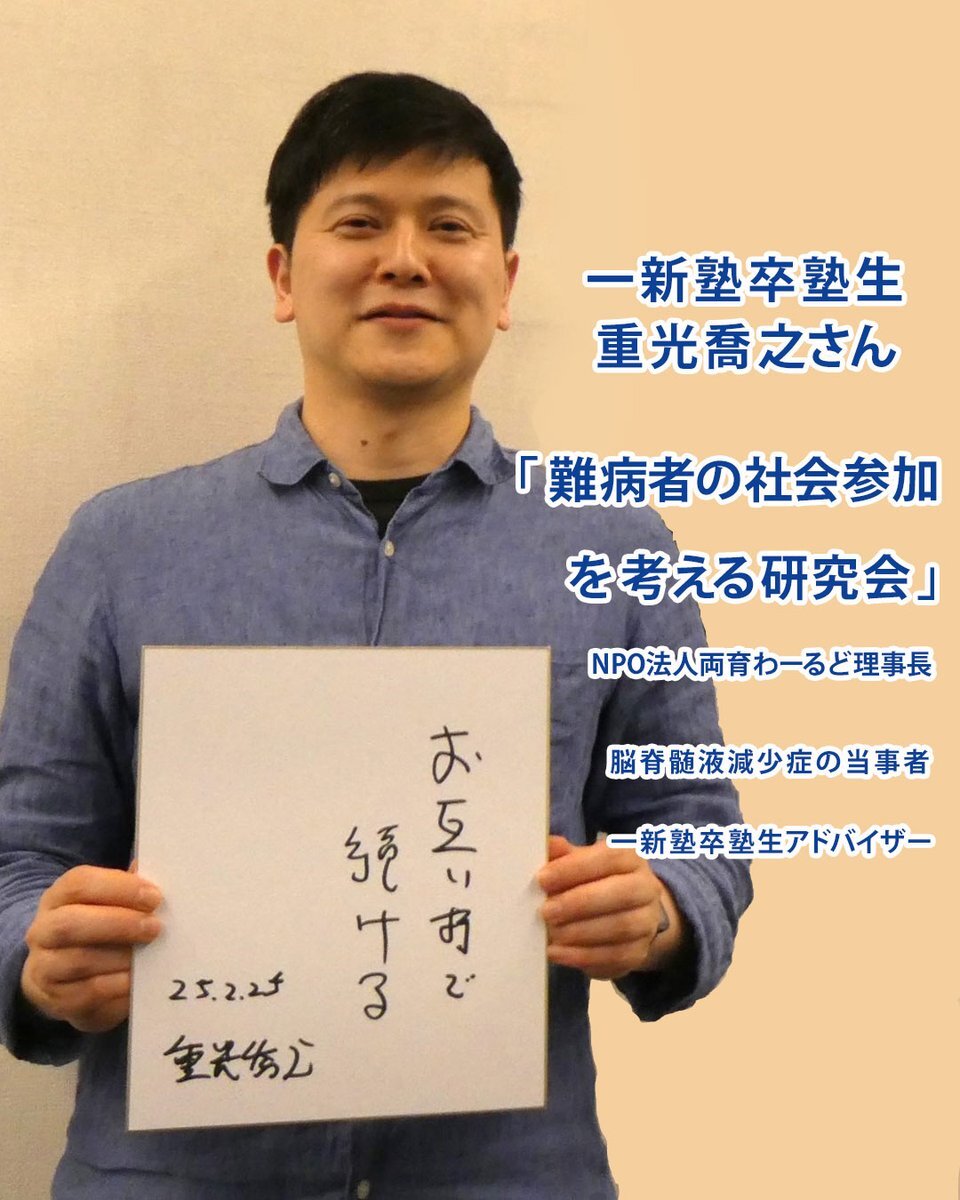 一新塾卒塾生
重光喬之さん
「難病者の社会参加
を考える研究会」
NPO法人両育わーるど理事長
脳脊髄液減少症の当事者
一新塾卒塾生アドバイザー
お互い有で
続ける
25.2.25
重光喬之